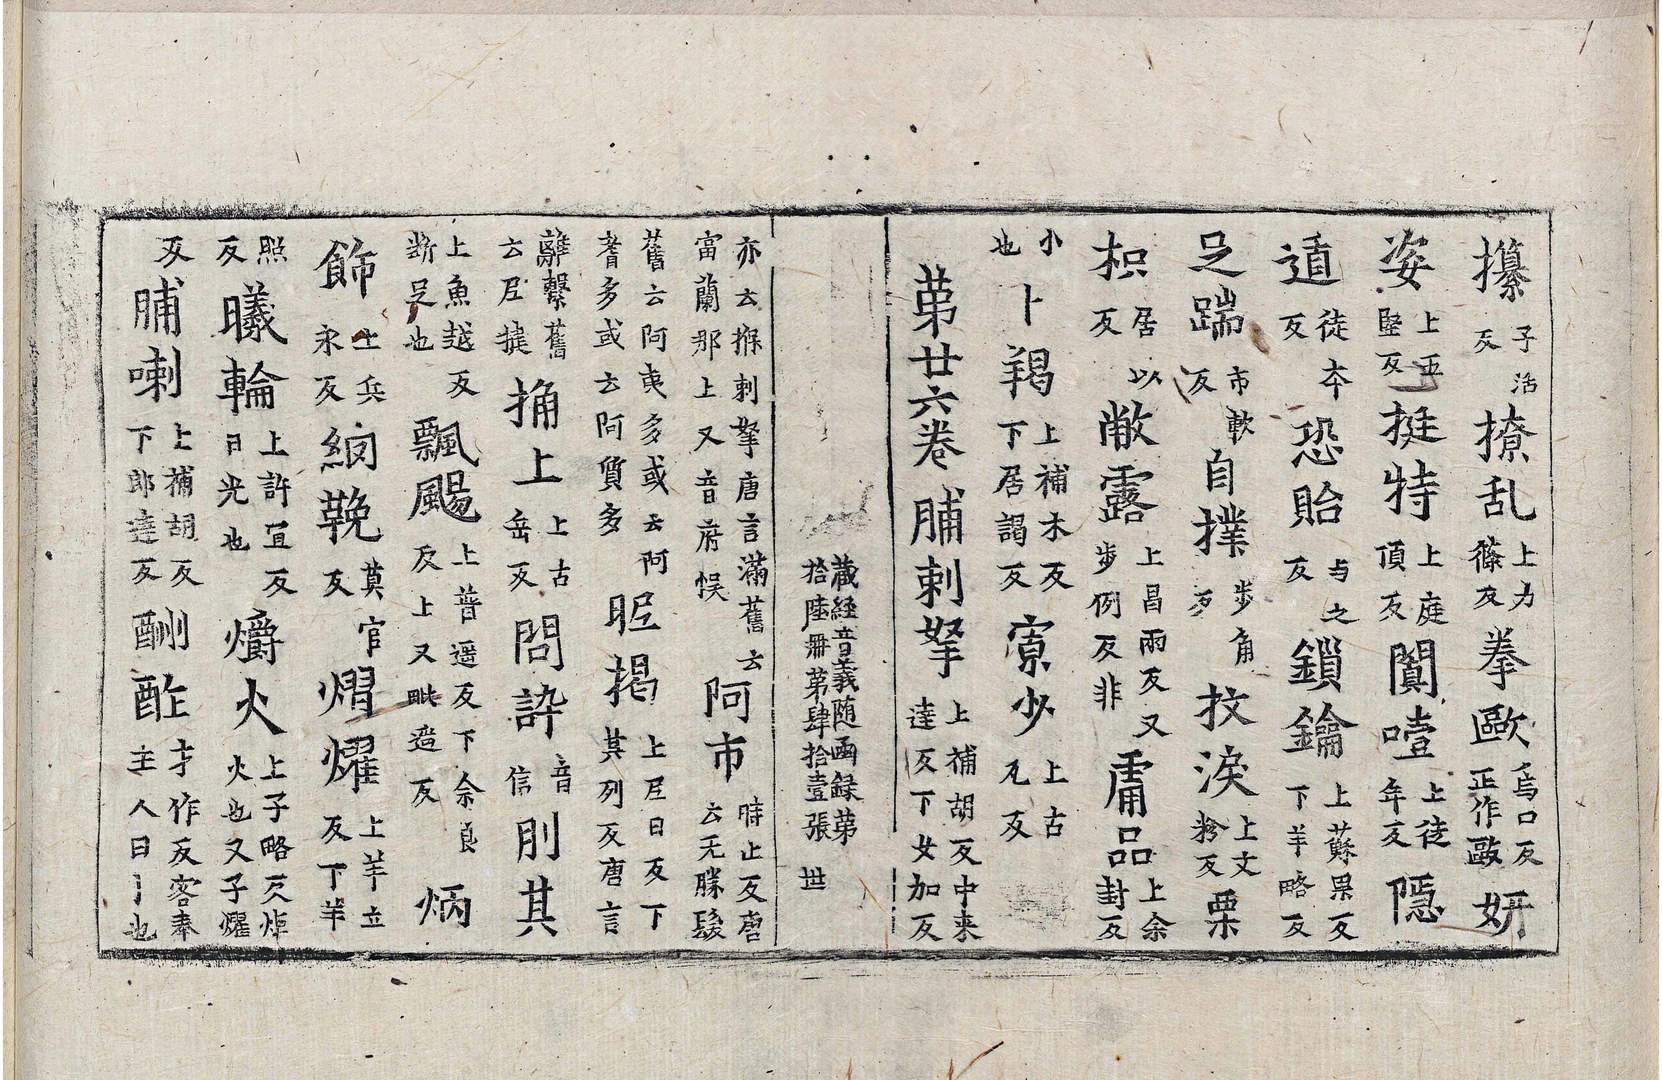 攥子活反撩乱上力篠反拳歐烏口反正作毆妍
姿上五堅反挺特上庭頂反闐噎上徒年反隱
遁徒夲反恐貽与之反鎖鑰上蘇果反下羊略反
足踹市軟反自撲步角反抆淚上文粉反栗
枳居以反敞露上昌兩反又步例反非庸品上余封反
小也卜羯上補木反下居謁反寡少上古瓦反
苐廿六卷脯剌拏上補胡反中来達反下女加反
藏經音義随函録苐
拾陸冊苐肆拾壹張 世
亦云褓剌拏唐言滿舊云富蘭那上又音府悮阿市時止反唐云无勝髮
舊云阿夷多或云阿耆多或云阿質多昵揭上尼日反下其列反唐言
離繫舊云尼揵捔上上古岳反問訫音信刖其
上魚越反断足也飄颺上普遥反下余良反上又毗遥反炳
飾上兵永反絢鞔莫官反熠燿上羊立反下羊
照反曦輪上許宜反日光也爝火上子略反炬火也又子燿
反脯喇上補胡反下郎達反酬酢才作反客奉主人曰丨也